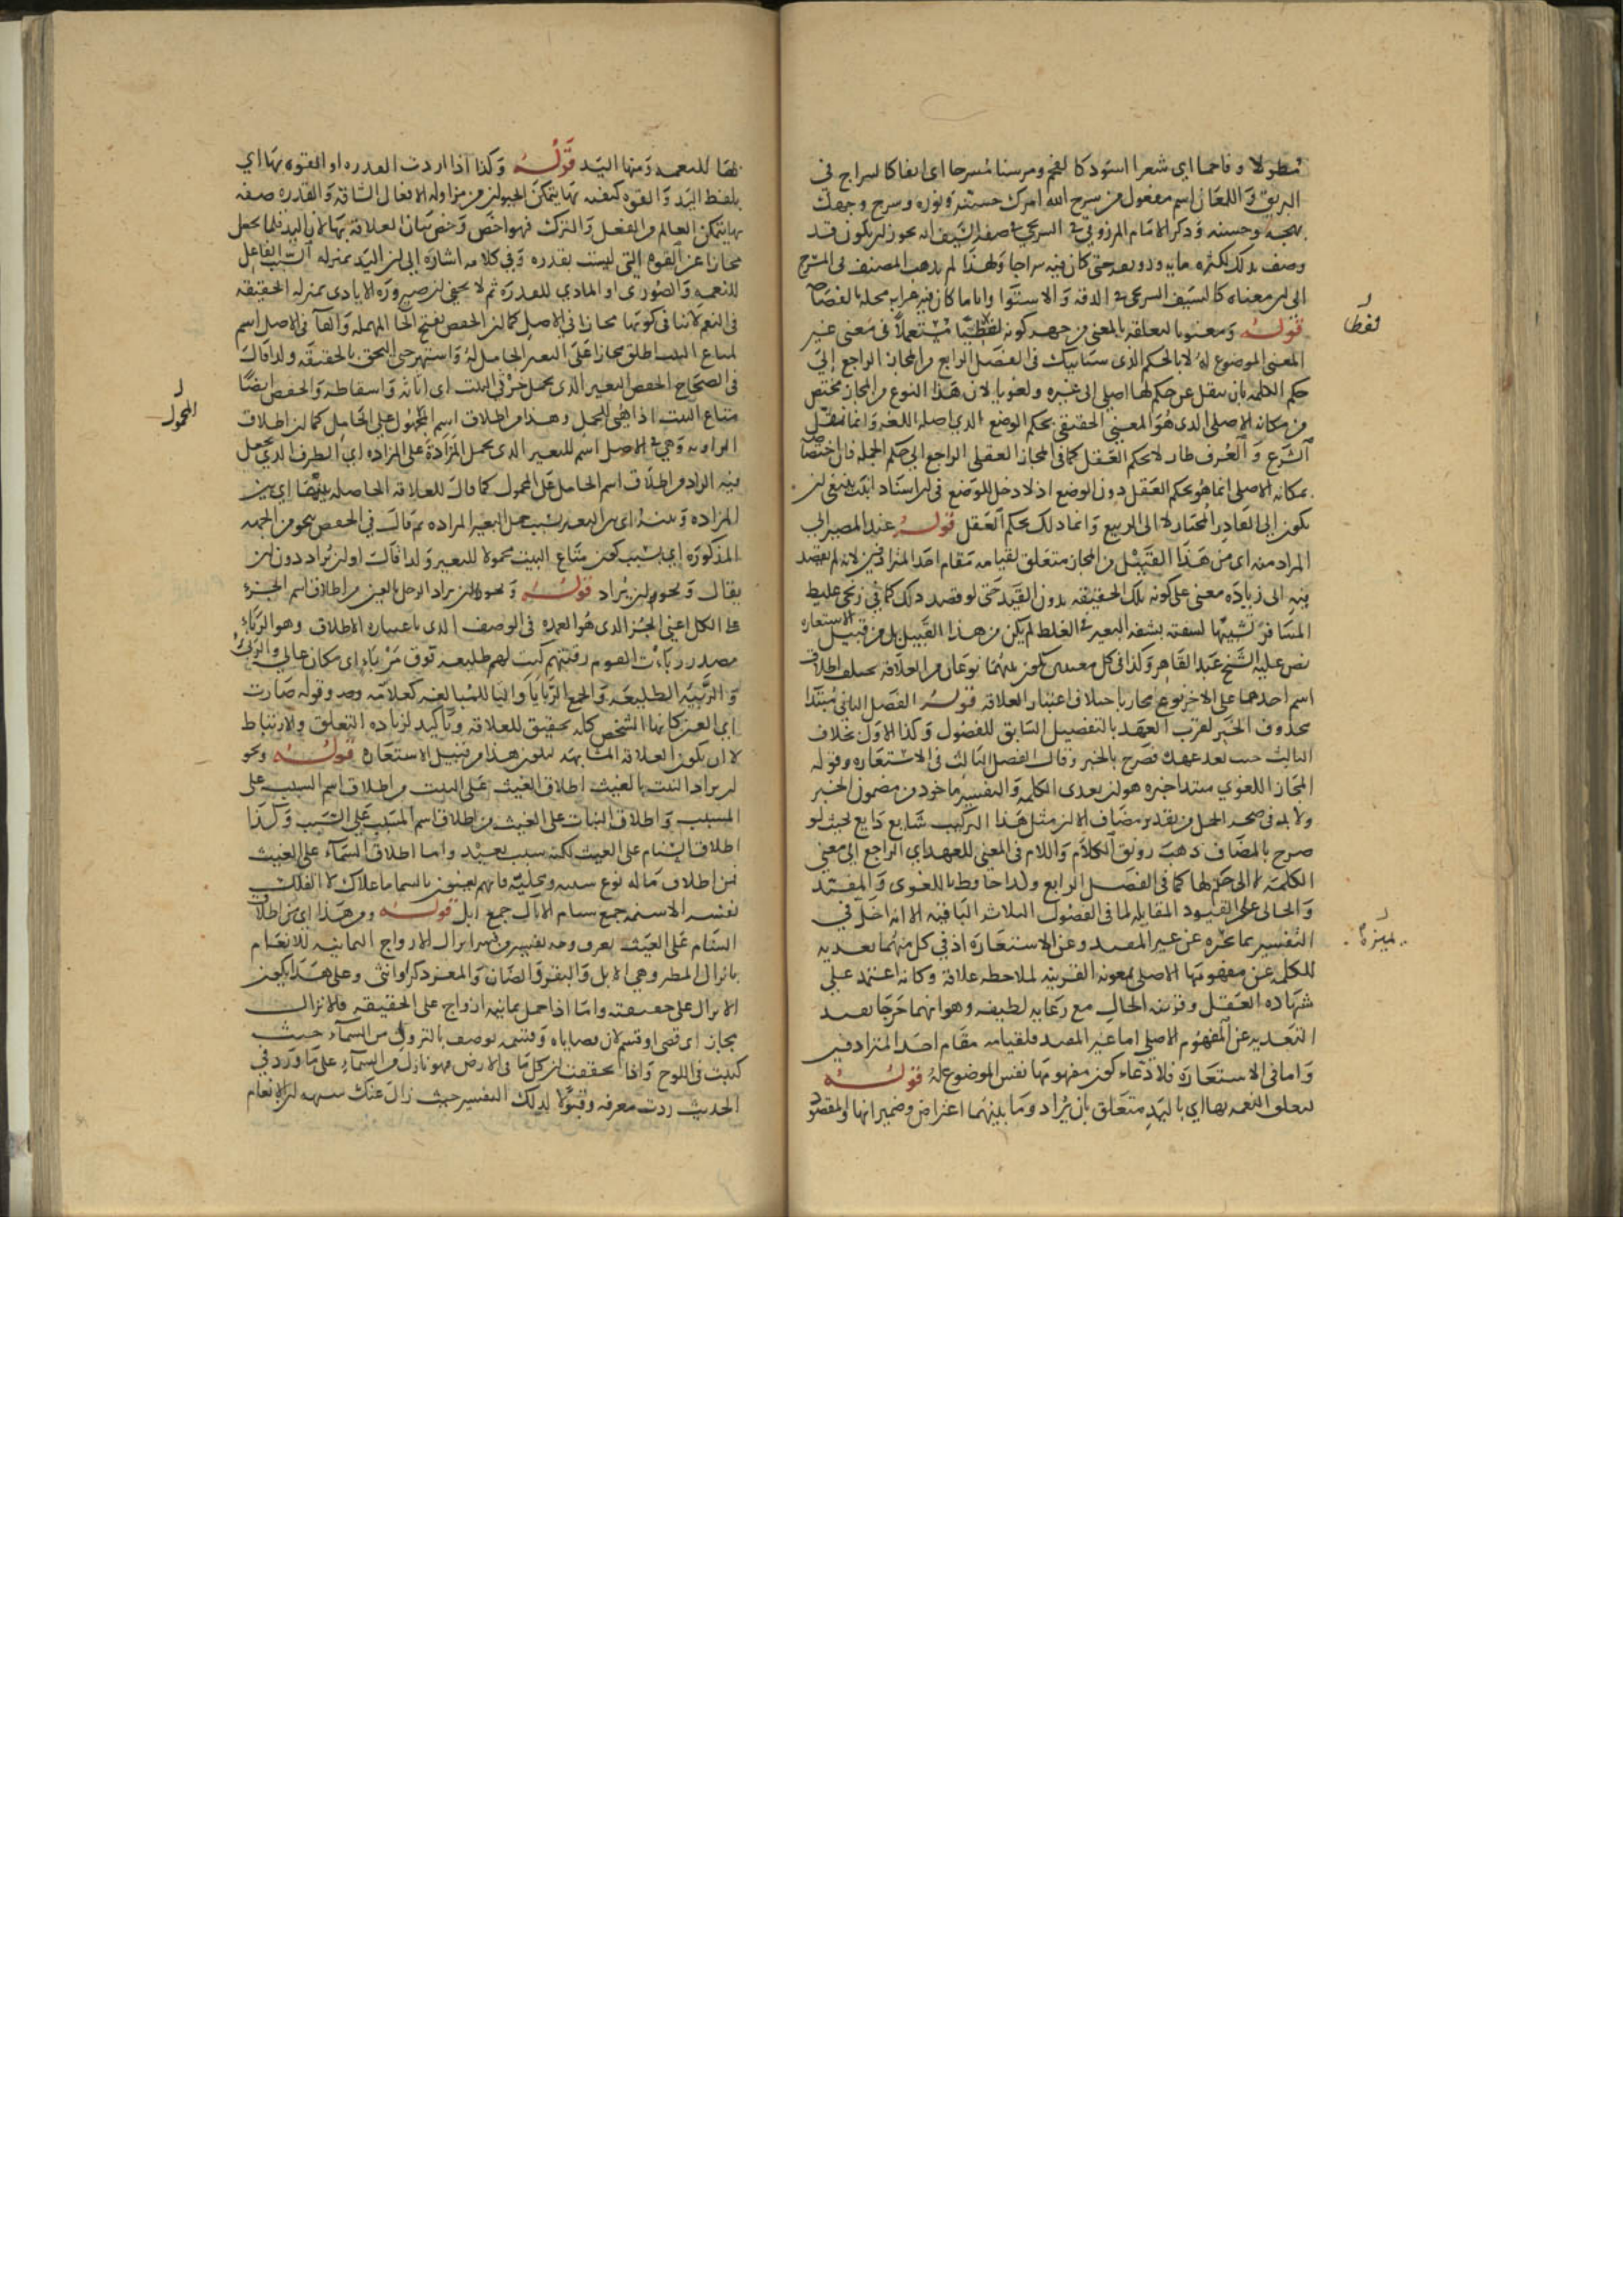 مطولا وفاحما اي شعرا اسود كالفحم ومرسنا مسرجا اي انفا كالسراج في
البريق واللمعان اسم مفعول من سرج الله امرك حسنه ونوره وسرج وجهك
بهجه وحسنه وذكر الامام المرزوقي في السريجي في صفة السيف انه يجوز ان يكون قد
وصف بذلك لكثرة مايه ورونقه حتى كان فيه سراجا ولهذا لم يذهب المصنف في المسرج
الى ان معناه كالسيف السريجي في الدقة والاستوا واياما كان فيه غرابه مخله بالفصاحة
قوله ومعنويا لتعلقه بالمعنى من جهه كونه لفظيا مستعملا في معنى غير
المعنى الموضوع له لا بالحكم الذي سيأتيك في الفصل الرابع من المجاز الراجع الى
حكم الكلمه بان ينقل عن حكم لها اصلي الى غيره ولغويا لان هذا النوع من المجاز مختص
من مكانه الاصلي الذي هو المعنى الحقيقي بحكم الوضع الذي اصله اللغه وانما نقل
الشرع والعرف طار لا بحكم العقل كما في المجاز العقلي الراجع الى حكم الجمله فان اختصاصه
بمكانه الاصلي انما هو بحكم العقل دون الوضع اذ لا دخل للوضع في ان اسناد انبت ينبغي ان
يكون الى القادر المختار لا الى الربيع وانما ذلك بحكم العقل قوله عند المصير الى
المراد منه اي من هذا القبيل من المجاز متعلق لقيامه مقام احد المترادفين لانه لم يقصد
فيه الى زياده معنى على كونه تلك الحقيقه بدون القيد حتى لو قصد ذلك كما في زنجي غليظ
المشافر تشبيها لشفته بشفه البعير في الغلظ لم يكن من هذا القبيل بل من قبيل الاستعاره
نص عليه الشيخ عبد القاهر وكذا في كل معنيين يكون بينهما نوعان من العلاقه يختلف اطلاق
اسم احدهما على الاخر نوع مجاز باختلاف اعتبار العلاقه قوله الفصل الثاني مبتدا
محذوف الخبر لقرب العهد بالتفصيل السابق للفصول وكذا الاول بخلاف
الثالث حيث بعد عهدك فصرح بالخبر وقال الفصل الثالث في الاستعاره وقوله
المجاز اللغوي مبتدا خبره هو ان يعدى الكلمه والتفسير ماخوذ من مضمون الخبر
ولا بد في صحه الحمل من تقدير مضاف الا ان مثل هذا التركيب شايع ذايع بحيث لو
صرح بالمضاف ذهب رونق الكلام واللام في المعنى للعهد اي الراجع الى معنى
الكلمة لا الى حكم لها كما في الفصل الرابع ولذا حافظ باللغوي والمفيد
والخالي على القيود المقابله لما في الفصول الثلاثه الباقيه الا انه اخل في
التفسير بما يميزه عن غير المفيد وعن الاستعارة اذ في كل منهما تعديه
للكلمه عن مفهومها الاصلي بمعونه القرينه لملاحظه علاقة وكانه اعتمد على
شهاده العقل وقرينه الحال مع رعايه لطيفه وهو انهما خرجا بقيد
التعديه عن المفهوم الاصلي اما غير المفيد فلقيامه مقام احد المترادفين
واما في الاستعاره فلادعاء كون مفهومها نفس الموضوع له قوله
لتعلق النعمه بها اي باليد متعلق بان يراد وما بينهما اعتراض وضمير انها والمقصود
فقط
يميزه
بها للنعمه ومنها اليد قوله وكذا اذا اردت القدره او القوه بها اي
بلفظ اليد والقوه كيفيه بها يتمكن الحيوان من مزاوله الافعال الشاقه والقدره صفه
بها يتمكن العالم من الفعل والترك فهو اخص وخص بيان العلاقه بها لان اليد قلما يجعل
مجازا عن القوه التي ليست بقدره وفي كلامه اشاره الى ان اليد بمنزله السبب الفاعل
للنعمه والصوري او المادي للقدره ثم لا يخفى ان صيروره الايادي بمنزله الحقيقه
في النعم لا تنافي كونها مجازا في الاصل كما ان الحفض بفتح الحا المهمله والفا في الاصل اسم
لمتاع البيت اطلق مجازا على البعير الحامل له واشتهر حتى التحق بالحقيقه ولذا قال
في الصحاح الحفض البعير الذي يحمل خرثي البيت اي اثاثه واسقاطه والحفض ايضا
متاع البيت اذا هُيّئ للحمل وهذا من اطلاق اسم المحمول على الحامل كما ان اطلاق
الراويه وهي في الاصل اسم للبعير الذي يحمل المزادة على المزاده اي الظرف الذي يجعل
فيه الزاد من اطلاق اسم الحامل على المحمول كما قال للعلاقه الحاصله بينها اي بين
المزاده وبينه اي بين البعير بسبب حمل البعير المزاده ثم قال في الحفض بنحو من الجهه
المذكوره اي بسبب كون متاع البيت محمولا للبعير ولذا قال او ان يراد دون ان
يقال ونحو ان يراد قوله ونحو ان يراد الرجل بالعين من اطلاق اسم الجزء
على الكل اعني الجزء الذي هو العمده في الوصف الذي باعتباره الاطلاق وهو الربأ
مصدر ربأت القوم رقبتهم كنت لهم طليعه فوق مربأ اي مكان عالي
والربيئه الطليعه والجمع الربايا والتا للمبالغه كعلامه وقوله صارت
اي العين كانها الشخص كله تحقيق للعلاقه وتاكيد لزياده التعلق والارتباط
لا ان يكون العلاقه المشابهه ليكون هذا من قبيل الاستعاره قوله ونحو
ان يراد النبت بالغيث اطلاق الغيث على النبت من اطلاق اسم السبب على
المسبب واطلاق النبات على الغيث من اطلاق اسم المسبب على السبب وكذا
اطلاق السنام على الغيث لكنه سبب بعيد واما اطلاق السماء على الغيث
فمن اطلاق ماله نوع سببيه ومحلية فانهم يعنون بالسما ما علاك لا الفلك
نفسه الاسنمه جمع سنام الابال جمع ابل قوله ومن هذا اي من اطلاق
السنام على الغيث يعرف وجه تفسير من فسر انزال الازواج الثمانيه للانعام
بانزال المطر وهي الابل والبقر والضان والمعز ذكرا وانثى وعلى هذا يكون
الانزال على حقيقته واما اذا حمل ثمانيه ازواج على الحقيقه فالانزال
مجاز اي قضى او قسم لان قضاياه وقسمه توصف بالنزول من السماء حيث
كتبت في اللوح واذا تحققت ان كل ما في الارض فهو نازل من السماء على ما ورد في
الحديث زدت معرفه وقبولا لذلك التفسير حيث زال عنك شبهه ان الانعام
المحمول